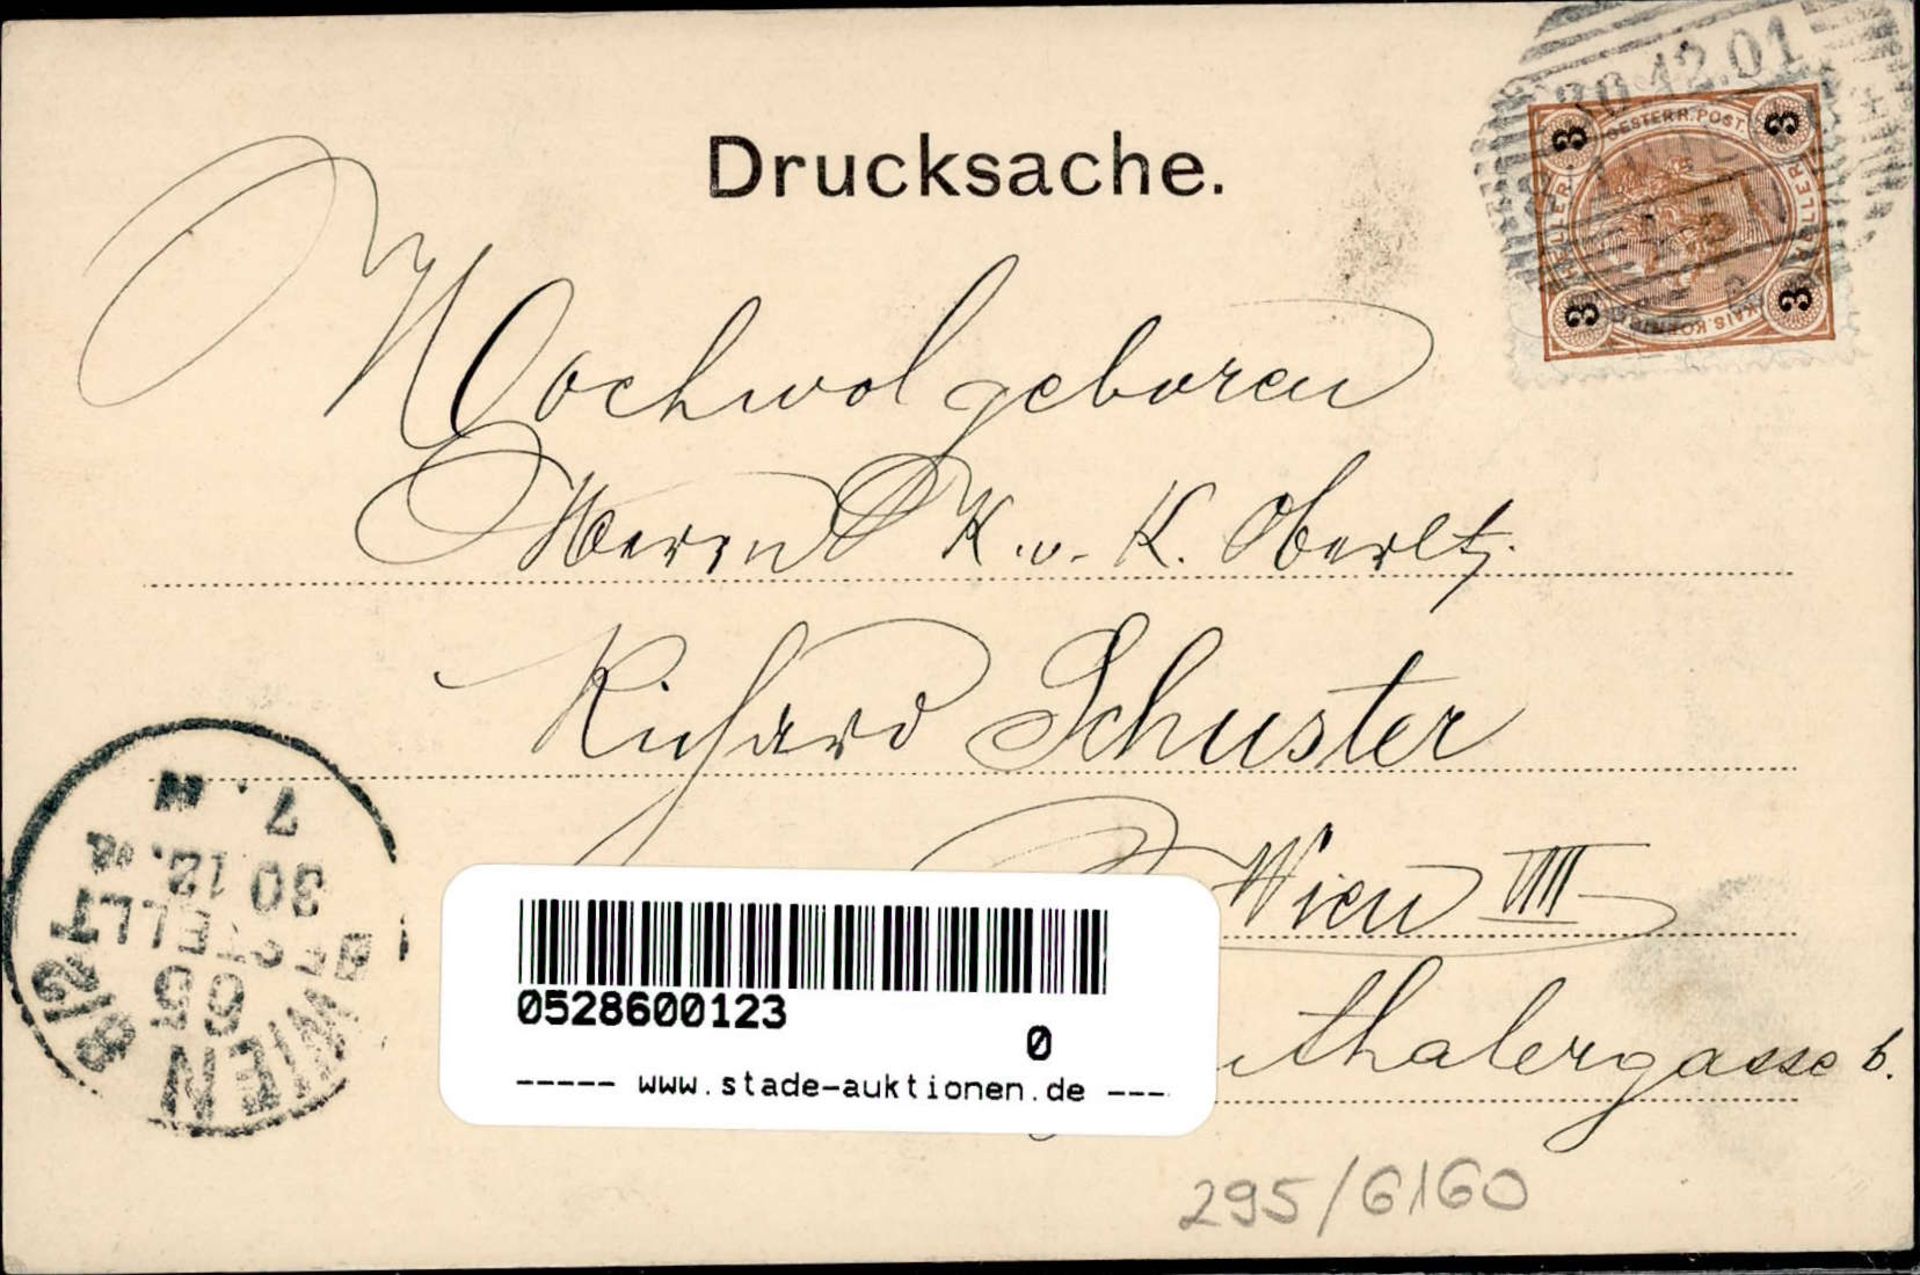 30.12.01
3 OESTERR. POST. 3
HELLER HELLER
3 KAIS. KOENIGL. 3
Drucksache.
Hochwolgeboren
Herrn K. u. K. Oberltz.
Richard Schuster
Wien VIII
thalergasse 6.
7. M
30 12.
BESTELLT
66
WIEN
8/2
0528600123
0
----- www.stade-auktionen.de ---
295/6160